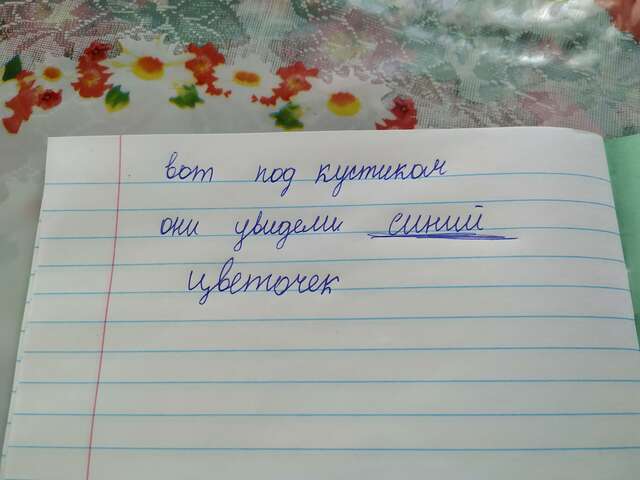 вот под кустиком
они увидели синий
цветочек